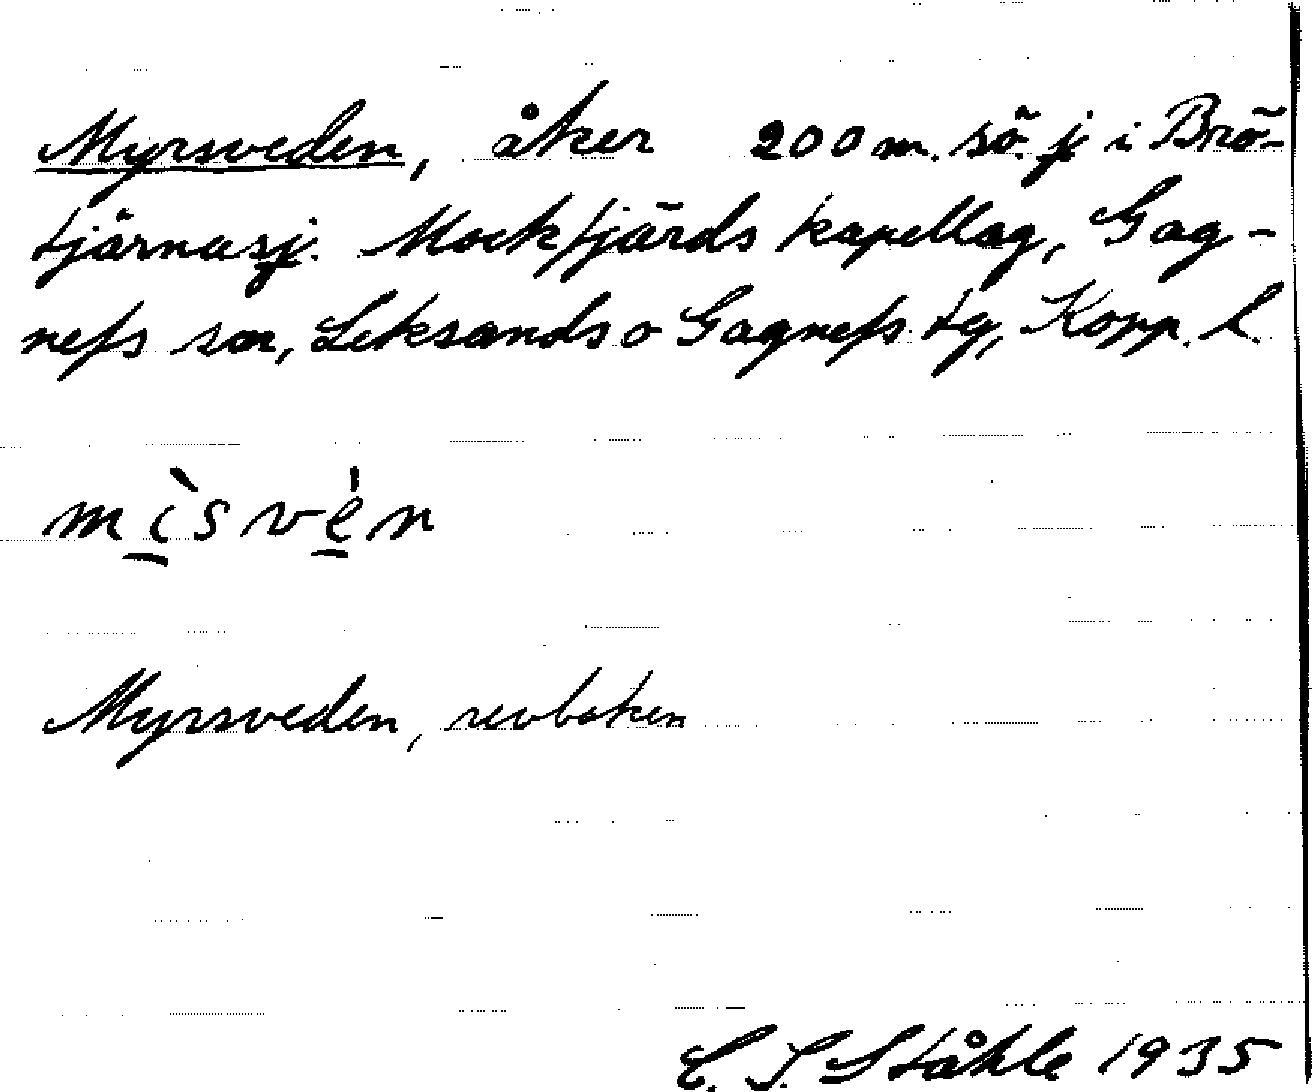 Myrsveden, åker 200 m. sö. j i Brö-
tjärnasj. Mockfjärds kapellag, Gag-
nefs sn, Leksands o Gagnefs tg, Kopp. l.
mìsvèn
Myrsveden, revboken
C. I. Ståhle 1935